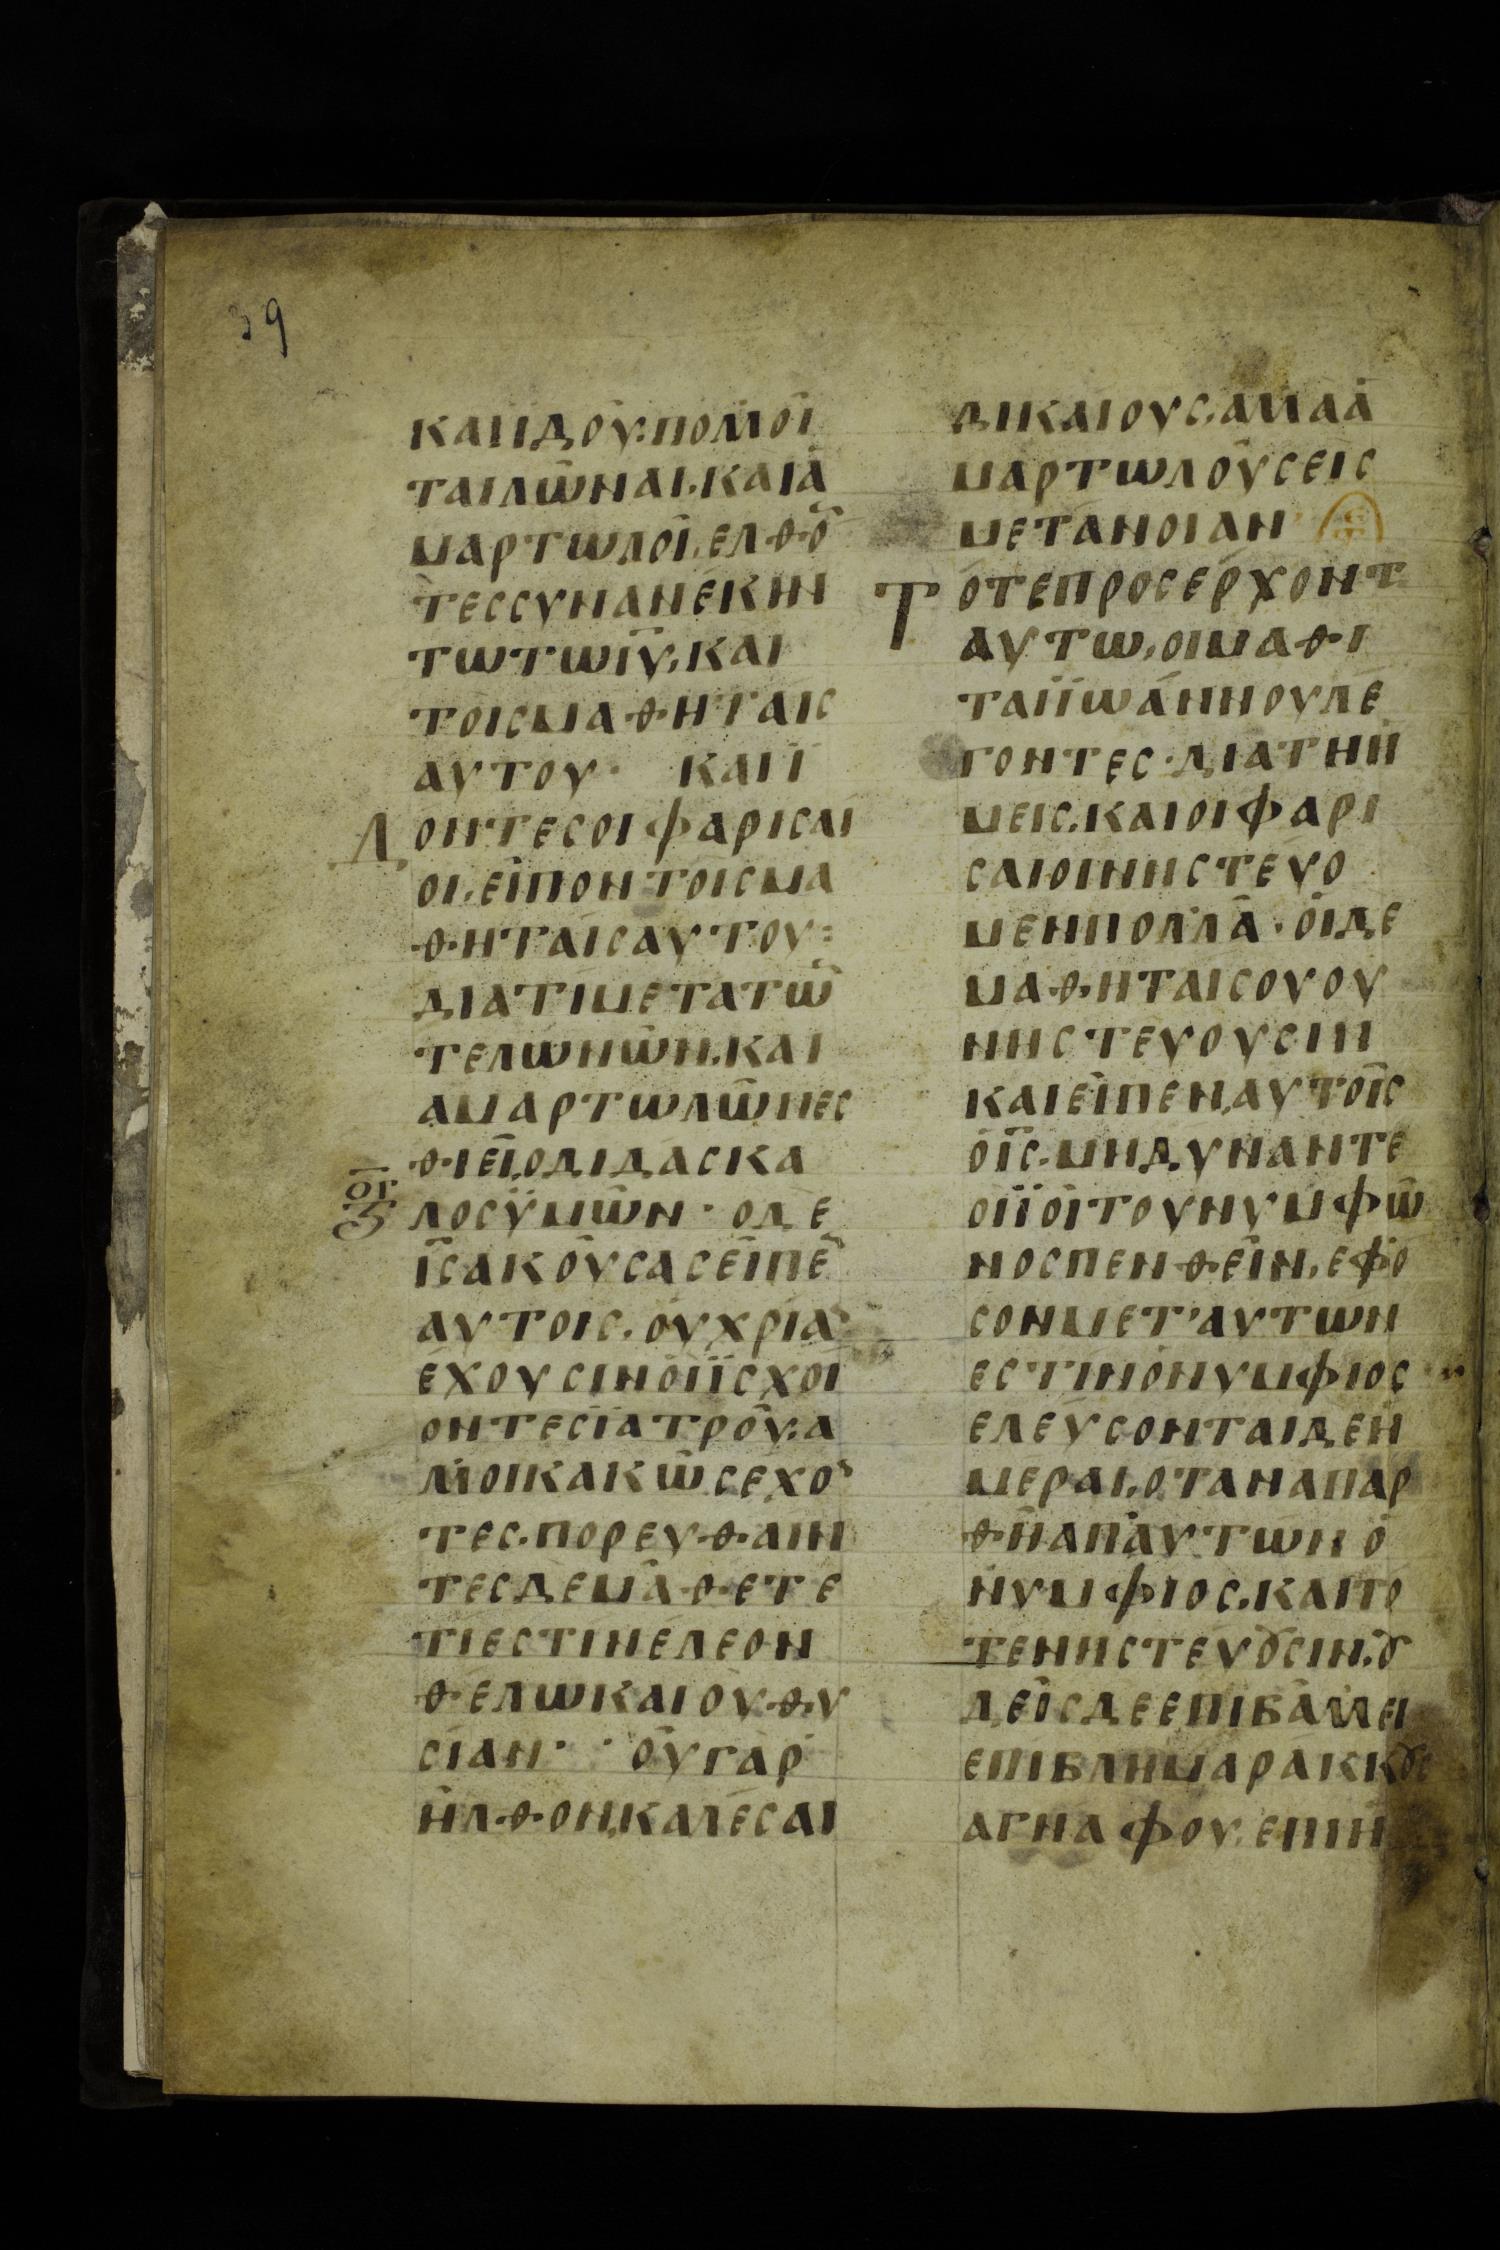 39
ΚΑΙΪΔΟΥ· ΠΟΛΛΟΙ
ΤΑΙΛΩΝΑΙ. ΚΑΙΑ
ΜΑΡΤΩΛΟΙ, ΕΛΘΟ̅
ΤΕССΥΝΑΝΕΚΙΝ
ΤΩΤΩΙ̅Υ̅, ΚΑΙ
ΤΟΙСΜΑΘΗΤΑΙС
ΑΥΤΟΥ· ΚΑΙΪ
Δ ΟΝΤΕСΟΙΦΑΡΙСΑΙ
ΟΙ, ΕΙΠΟΝΤΟΙСΜΑ
ΘΗΤΑΙСΑΥΤΟΥ:
ΔΙΑΤΙΜΕΤΑΤΩ̅
ΤΕΛΩΝΩΝ. ΚΑΙ
ΑΜΑΡΤΩΛΩΝΕС
ΘΙΕΙ, ΟΔΙΔΑСΚΑ
ΟΓ
ΛΟСΫΜΩΝ· ΟΔΕ
Ι̅С̅ΑΚΟΥСΑСΕΙΠΕ̅
ΑΥΤΟΙС. ΟΥΧΡΙΑ̅
ΕΧΟΥСΙΝΟΙΪСΧΟΙ
ΟΝΤΕСΪΑΤΡΟΥ. Α
ΛΛΟΙΚΑΚΩСΕΧΟ̅
ΤΕС. ΠΟΡΕΥΘΑΙΝ
ΤΕСΔΕΜΑΘΕΤΕ
ΤΙΕСΤΙΝΕΛΕΟΝ
ΘΕΛΩΚΑΙΟΥΘΥ
СΙΑΝ· ΟΥΓΑΡ
ΗΛΘΟΝ, ΚΑΛΕСΑΙ
ΔΙΚΑΙΟΥС, ΑΛΛΑΑ
ΜΑΡΤΩΛΟΥСΕΙС
ΜΕΤΑΝΟΙΑΝ
ΤΟΤΕΠΡΟСΕΡΧΟΝΤ
ΑΥΤΩ, ΟΙΜΑΘΙ
ΤΑΙΪΩΑΝΝΟΥΛΕ
ΓΟΝΤΕС· ΔΙΑΤΗΗ
ΜΕΙС. ΚΑΙΟΙΦΑΡΙ
СΑΙΟΙΝΗСΤΕΥΟ
ΜΕΝΠΟΛΛΑ· ΟΙΔΕ
ΜΑΘΗΤΑΙСΟΥΟΥ
ΝΗСΤΕΥΟΥСΙΝ
ΚΑΙΕΙΠΕΝ, ΑΥΤΟΙС
ΟΙ̅С̅. ΜΗΔΥΝΑΝΤΕ
ΟΙΪΟΙΤΟΥΝΥΜΦΩ
ΝΟСΠΕΝΘΕΙΝ, ΕΦΟ
СΟΝΜΕΤ'ΑΥΤΩΝ
ΕСΤΙΝΟΝΥΜΦΙΟС
ΕΛΕΥСΟΝΤΑΙΔΕΗ
ΜΕΡΑΙ, ΟΤΑΝΑΠΑΡ
ΘΗΑΠΑΥΤΩΝΟ
ΝΥΜΦΙΟС. ΚΑΙΤΟ
ΤΕΝΗСΤΕΥȣСΙΝ. ȣ
ΔΕΙСΔΕΕΠΙΒΑΛΛΕΙ
ΕΠΙΒΛΗΜΑΡΑΚΚȣС
ΑΓΝΑΦΟΥ. ΕΠΙΗ